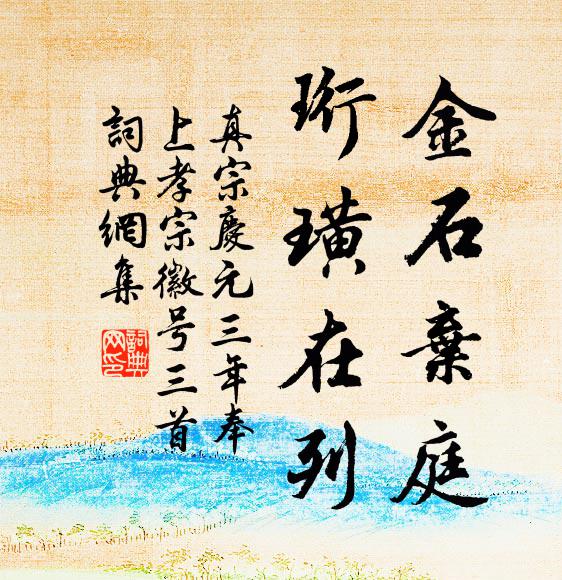 金石棄庭
珩璜在列
真宗慶元三年奉
上孝宗徽号三首
詞典網集
詞典
网印